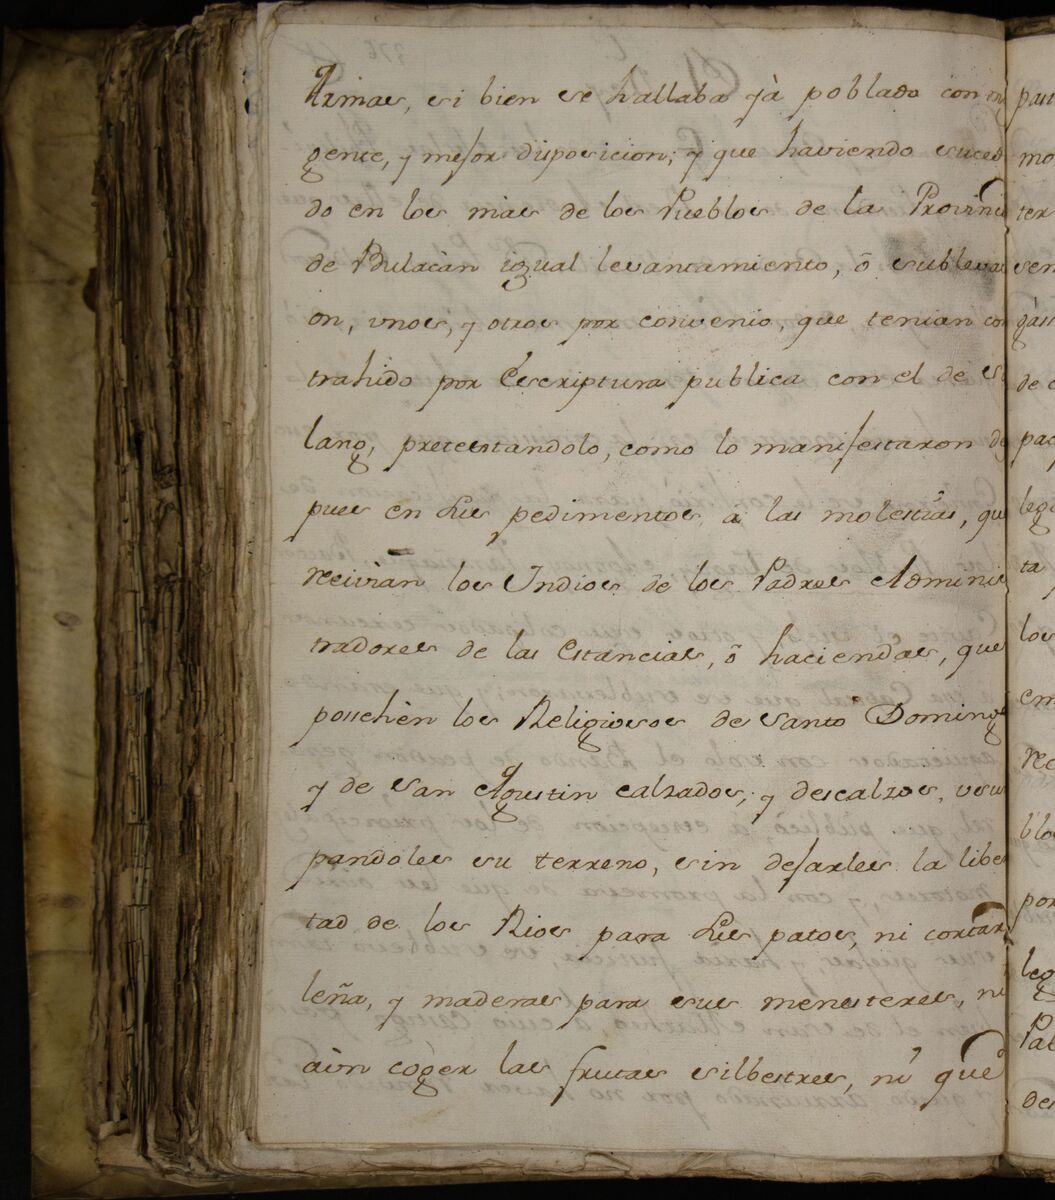 Armas, si bien se hallaba yà poblado con
gente, y mejor disposicion; y que haviendo suced
do en los mas de los Pueblos de la Provinci
de Bulacàn igual levantamiento, ô sublevaci
on, unos, y otros por convenio, que tenian con
trahido por Escriptura publica con el de Si
lang, pretestandolo, como lo manifestaron des
pues en sus pedimentos à las molestias, que
recivian los Yndios de los Padres Adminis
tradores de las Estancias, ô haciendas, que
posehèn los Religiosos de Santo Domingo
y de San Agustin calzados, y descalzos, usur
pandoles su terreno, sin dejarles la liber
tad de los Rios para sus patos, ni cortar
leña, y maderas para sus menesteres, ni
aùn cogèr las frutas silbestres, ni què
part
mo
ter
sen
de
pac
leg
ta
los
em
rec
blo
por
leg
Pal
de